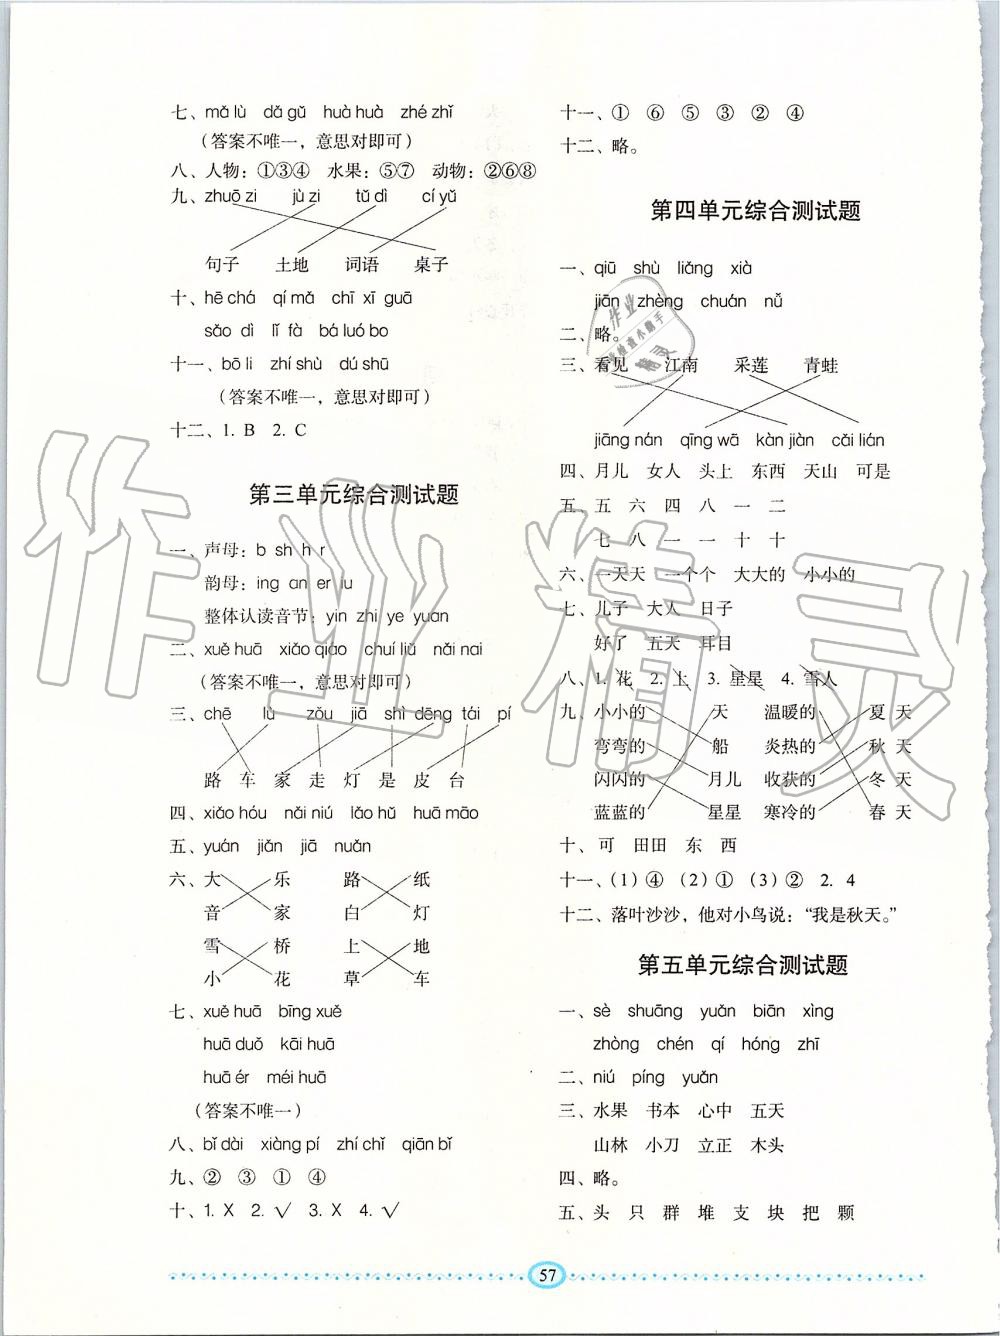 七、mǎ lù　dǎ gǔ　huà huà　zhé zhǐ
（答案不唯一，意思对即可）
八、人物：①③④　水果：⑤⑦　动物：②⑥⑧
九、zhuō zi　jù zi　tǔ dì　cí yǔ
句子　土地　词语　桌子
十、hē chá　qí mǎ　chī xī guā
sǎo dì　lǐ fà　bá luó bo
十一、bō li　zhí shù　dú shū
（答案不唯一，意思对即可）
十二、1. B　2. C
第三单元综合测试题
一、声母：b sh h r
韵母：ing an er iu
整体认读音节：yin zhi ye yuan
二、xuě huā　xiǎo qiáo　chuí liǔ　nǎi nai
（答案不唯一，意思对即可）
三、chē　lù　zǒu　jiā　shì dēng tái　pí
路　车　家　走　灯　是　皮　台
四、xiǎo hóu　nǎi niú　lǎo hǔ　huā māo
五、yuán　jiǎn　jiā　nuǎn
六、大　乐　路　纸
音　家　白　灯
雪　桥　上　地
小　花　草　车
七、xuě huā　bīng xuě
huā duǒ　kāi huā
huā ér　méi huā
（答案不唯一）
八、bǐ dài　xiàng pí　zhí chǐ　qiān bǐ
九、②　③　①　④
十、1. X　2. √　3. X　4. √
十一、①　⑥　⑤　③　②　④
十二、略。
第四单元综合测试题
一、qiū　shù　liǎng　xià
jiān　zhèng　chuán　nǚ
二、略。
三、看见　江南　采莲　青蛙
jiāng nán　qīng wā　kàn jiàn　cǎi lián
四、月儿　女人　头上　东西　天山　可是
五、五　六　四　八　一　二
七　八　一　一　十　十
六、一天天　一个个　大大的　小小的
七、儿子　大人　日子
好了　五天　耳目
八、1. 花　2. 上　3. 星星　4. 雪人
九、小小的　天　温暖的　夏 天
弯弯的　船　炎热的　秋 天
闪闪的　月儿　收获的　冬 天
蓝蓝的　星星　寒冷的　春 天
十、可　田田　东　西
十一、（1）④　（2）①　（3）②　2. 4
十二、落叶沙沙，他对小鸟说：“我是秋天。”
第五单元综合测试题
一、sè　shuāng　yuǎn　biān　xìng
zhòng　chén　qí　hóng　zhī
二、niú　píng　yuǎn
三、水果　书本　心中　五天
山林　小刀　立正　木头
四、略。
五、头　只　群　堆　支　块　把　颗
57
作业精灵